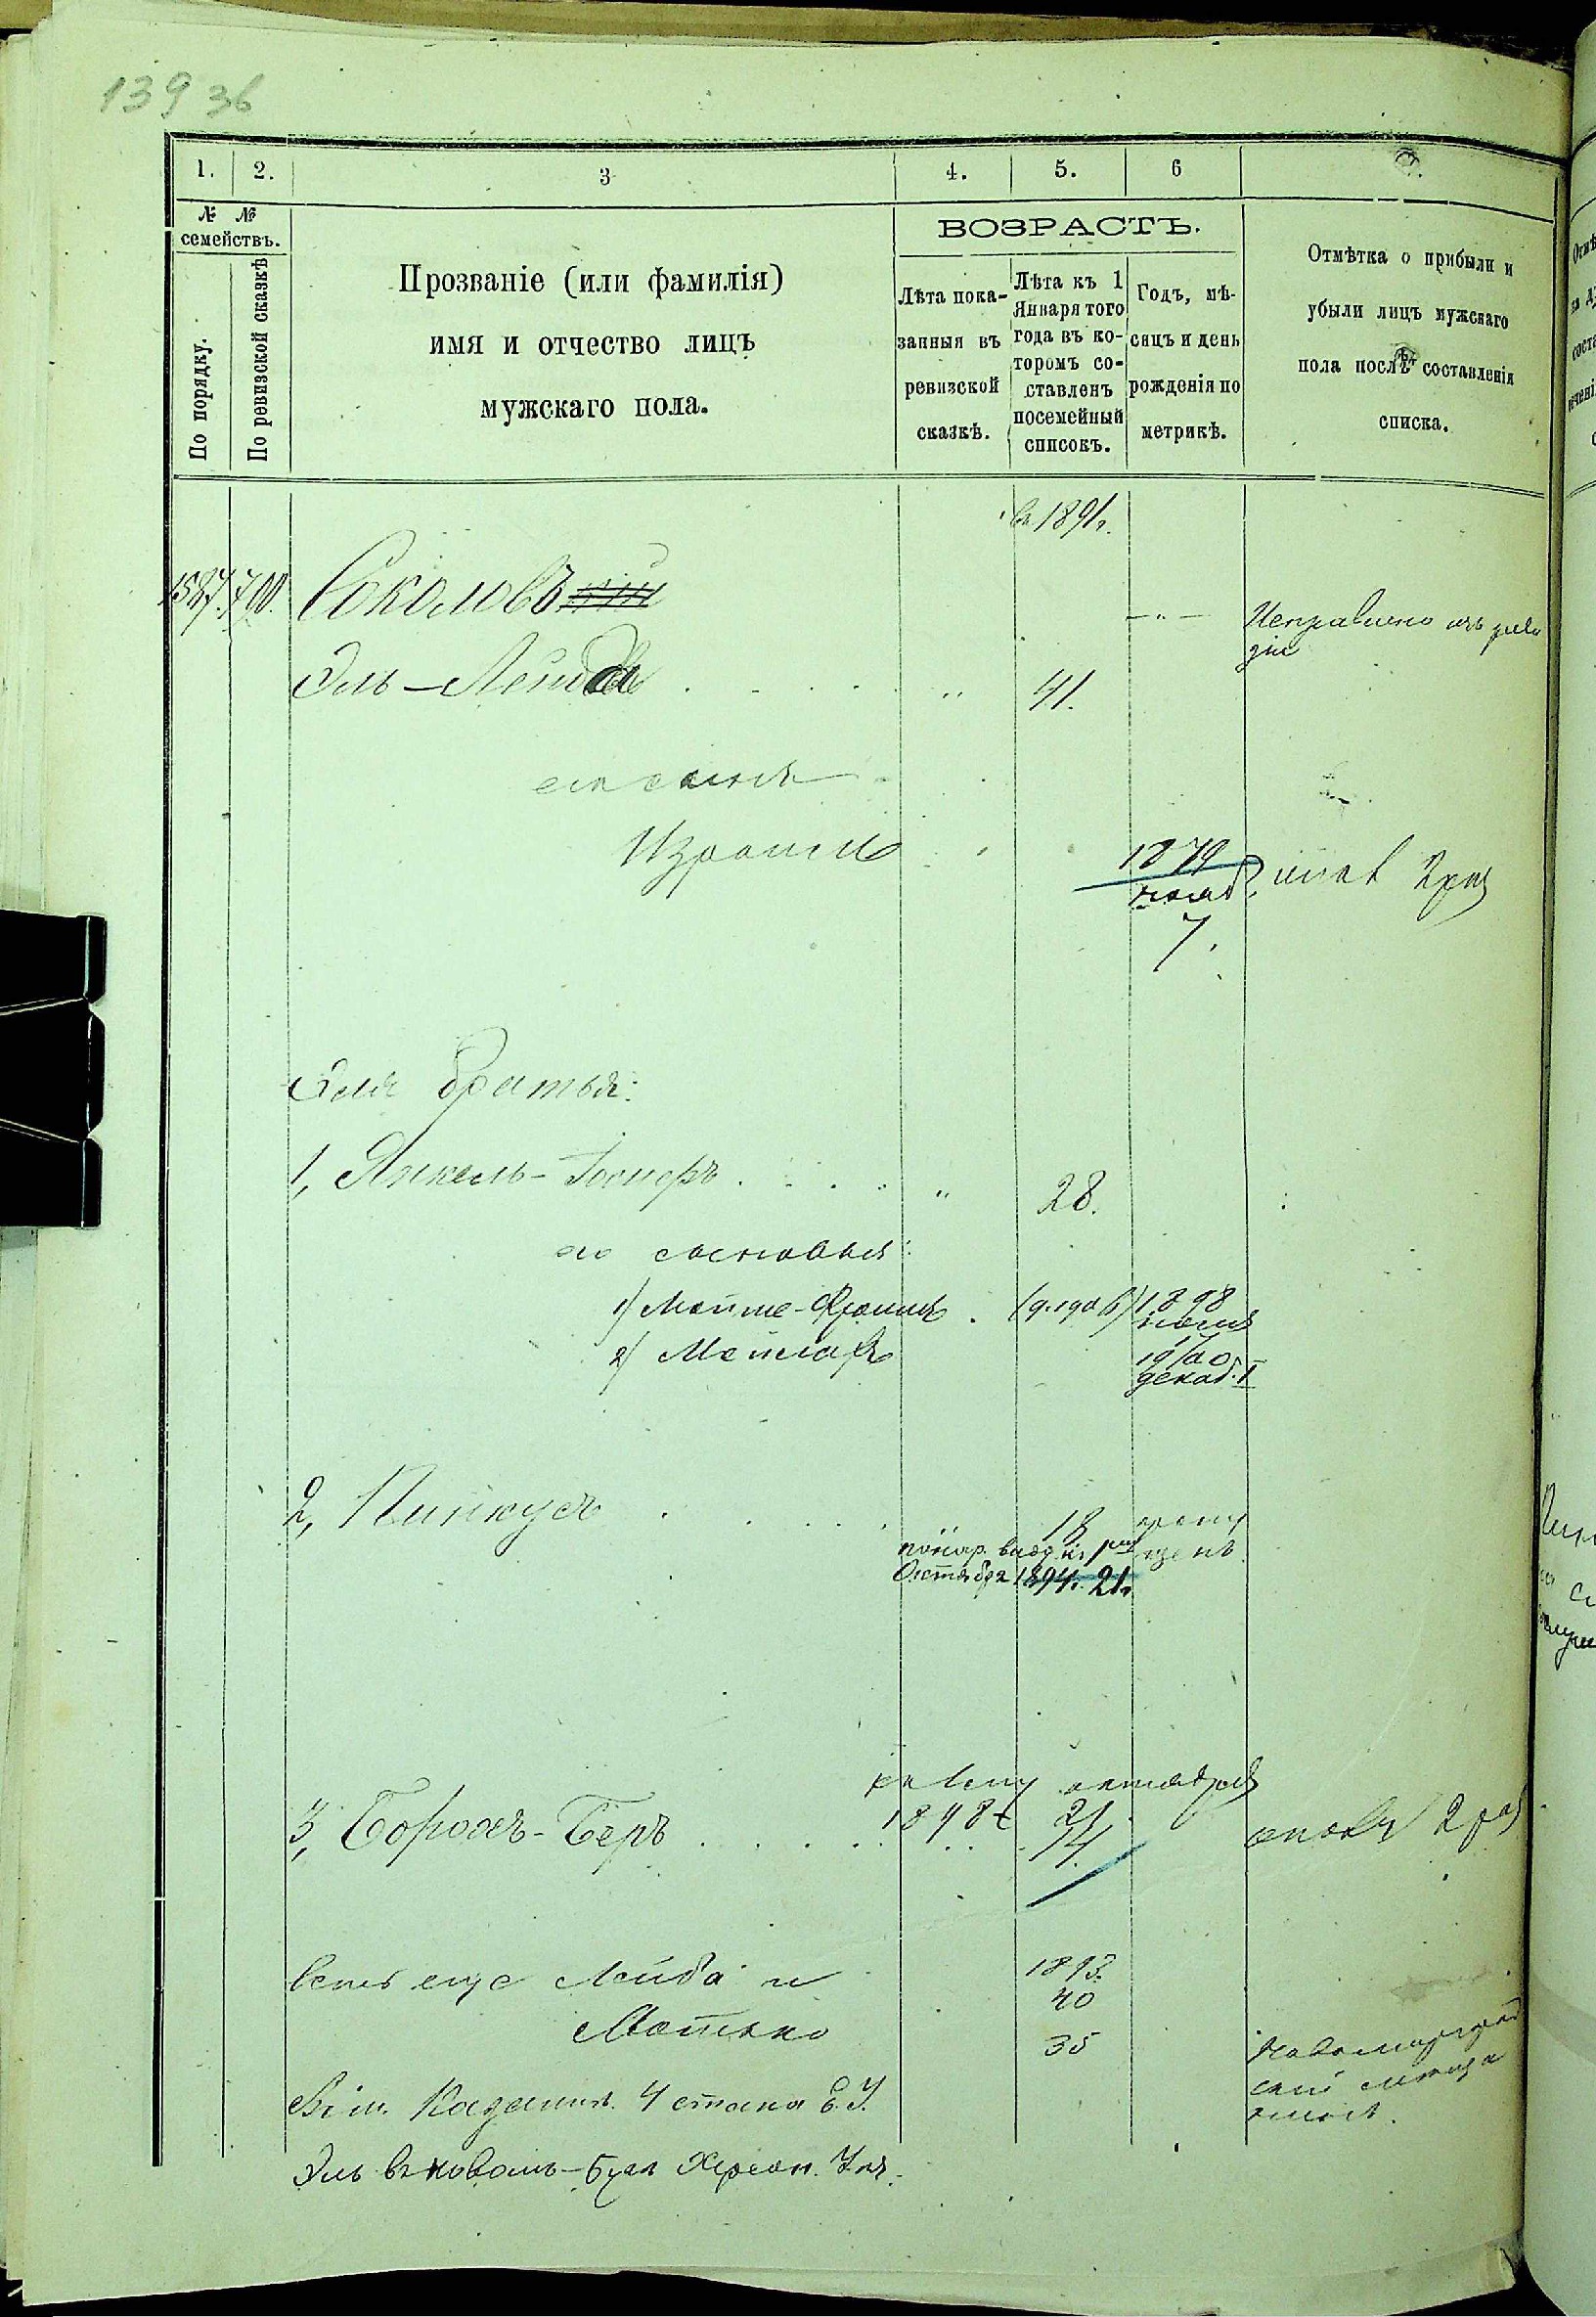 139 зв
1. 2. 3 4. 5. 6 7.
№ №
семействъ.
По порядку.
По ревизской сказкѣ
Прозваніе (или фамилія)
имя и отчество лицъ
мужскаго пола.
ВОЗРАСТЪ.
Лѣта пока-
занныя въ
ревизской
сказкѣ.
Лѣта къ 1
Января того
года въ ко-
торомъ со-
ставленъ
посемейный
списокъ.
Годъ, мѣ-
сяцъ и день
рожденія по
метрикѣ.
Отмѣтка о прибыли и
убыли лицъ мужскаго
пола послѣ составленія
списка.
въ 1891г.
1587. 700. Соколовъ
Эль-Лейба 41.
его сынъ
Израиль 1879
нояб.
7.
Эля братья:
1, Янкель-Іосифъ 28.
его сыновья:
1) Мойше-Фроимъ 1898
2) Мейлахъ 1900
декаб. 1
2, Пинкусъ 18
Октября 1894г. 21г.
къ 1ому октября
3, Борохъ-Беръ 1898г 21
14
Есть еще Лейба и 1893.
40
Мотько 35
4 стана Е. У.
Эль въ Новомъ-Бугѣ Херсон. Уѣз.